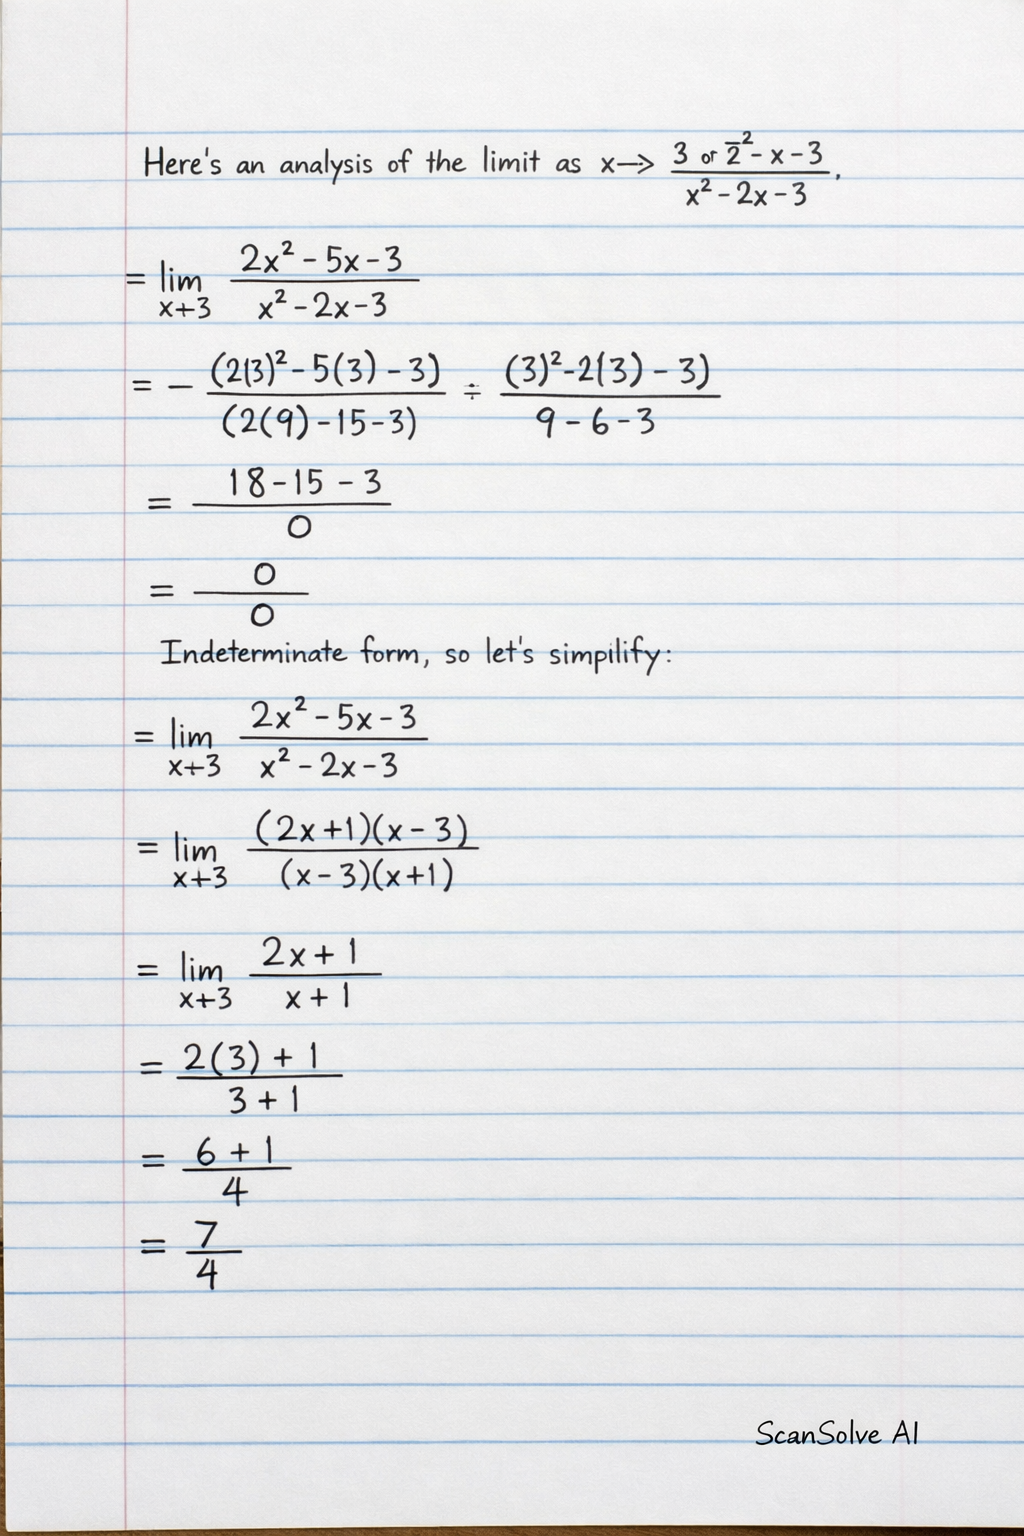 Here's an analysis of the limit as x→ (3 or 2̅² - x - 3)/(x² - 2x - 3).
= lim x+3 (2x² - 5x - 3)/(x² - 2x - 3)
= - (2(3)² - 5(3) - 3)/(2(9) - 15 - 3) ÷ (3)² - 2(3) - 3)/9 - 6 - 3
= 18 - 15 - 3/0
= 0/0
Indeterminate form, so let's simpilify:
= lim x+3 (2x² - 5x - 3)/(x² - 2x - 3)
= lim x+3 (2x + 1)(x - 3)/(x - 3)(x + 1)
= lim x+3 2x + 1/x + 1
= 2(3) + 1/3 + 1
= 6 + 1/4
= 7/4
ScanSolve AI